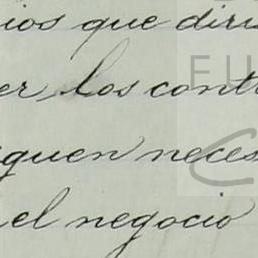 ios que diri
er, los contr
iguen neces
el negocio